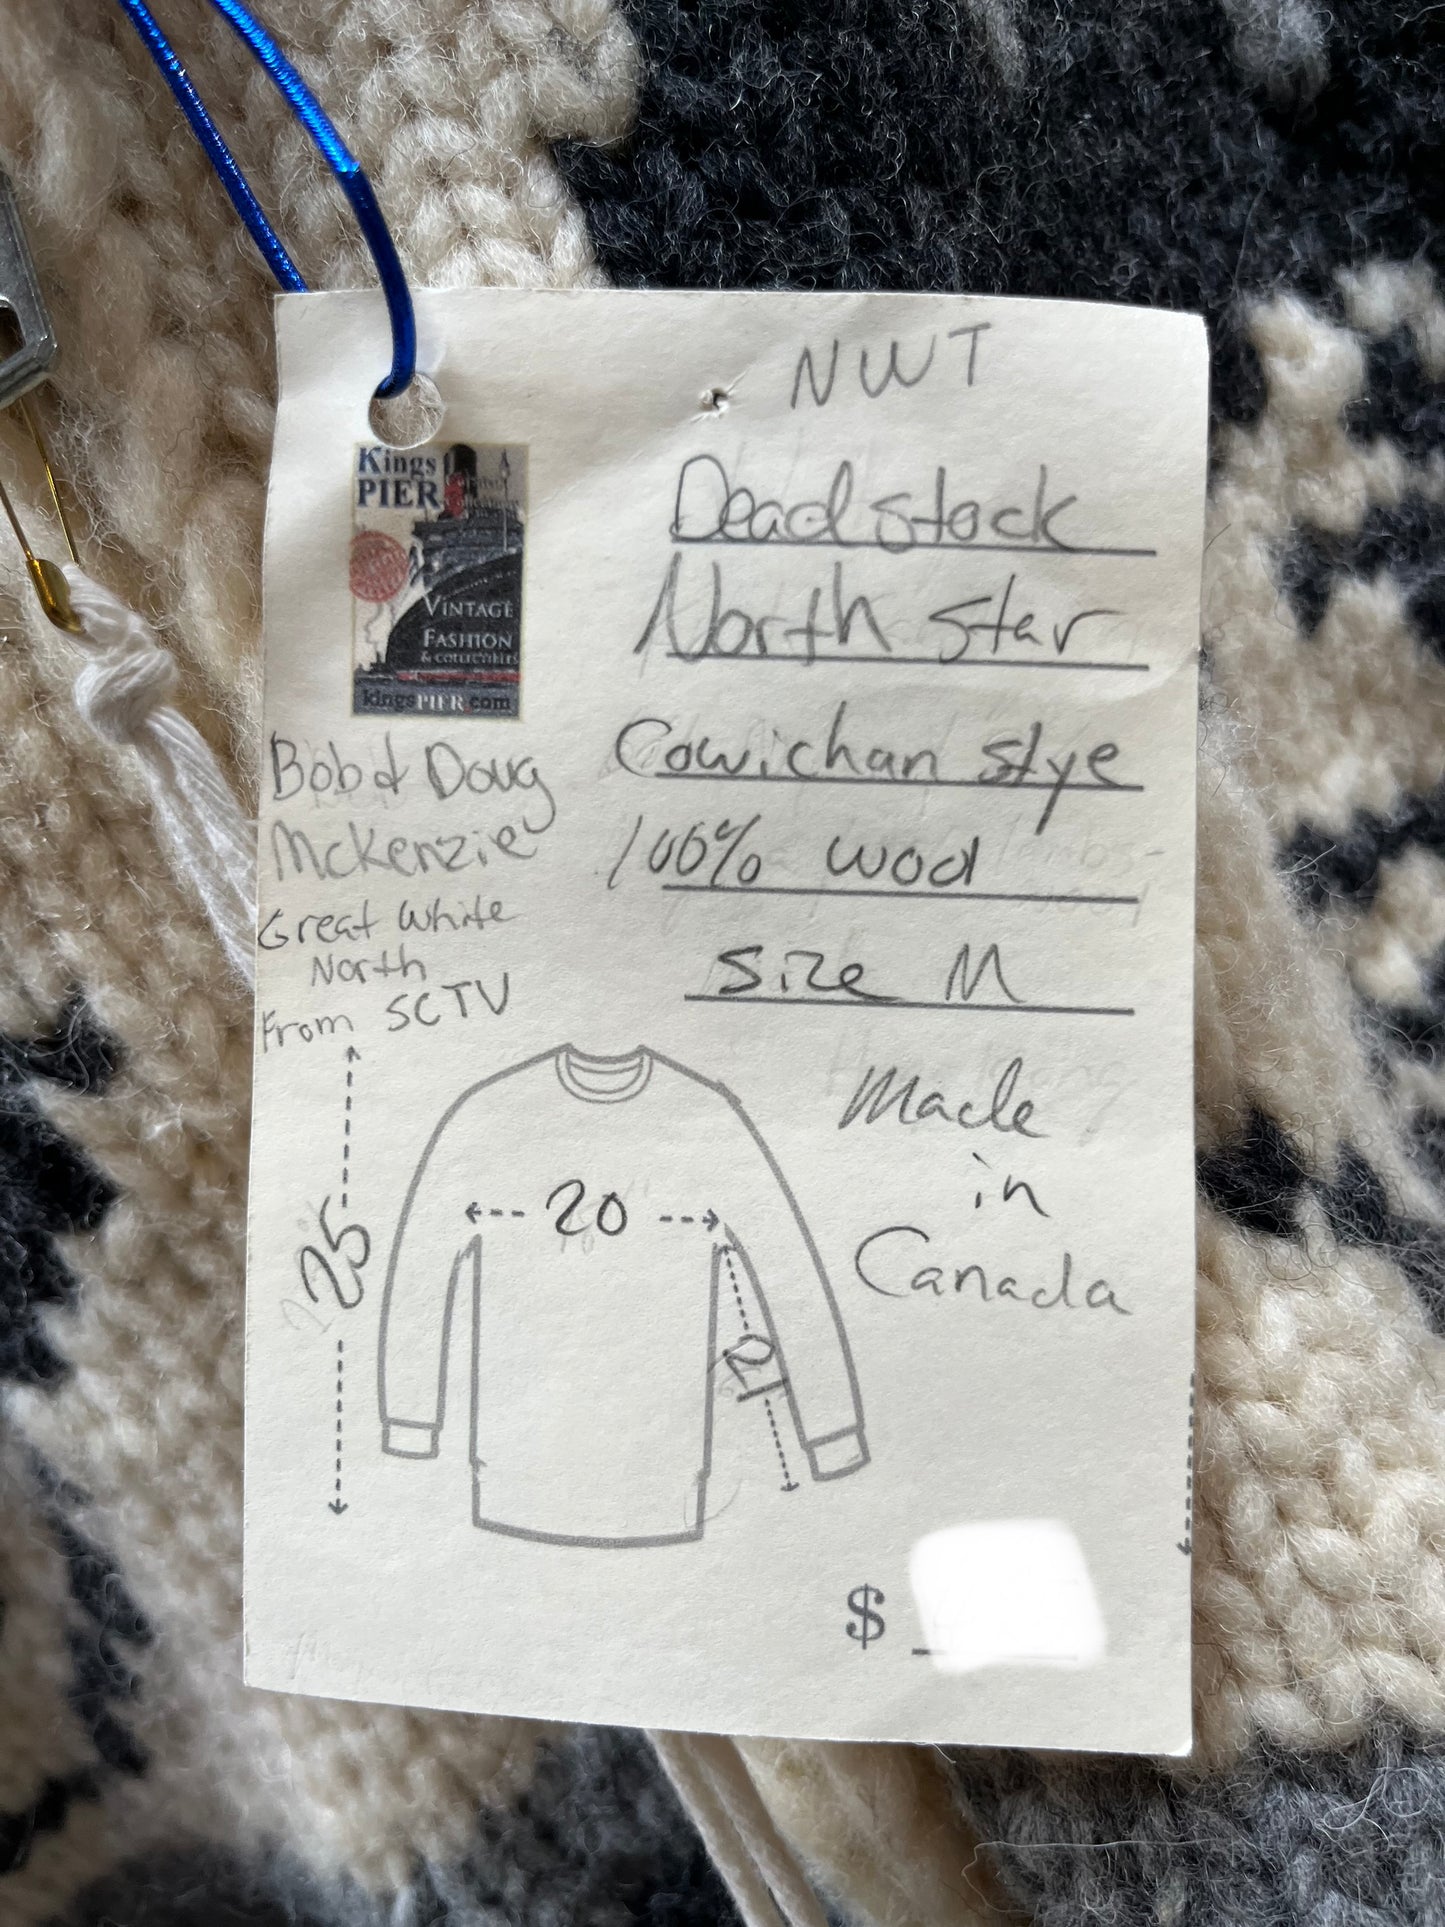 NWT
Kings
PIER
VINTAGE
FASHION
& COLLECTIBLES
kingsPIER.com
Deadstock
North Star
Cowichan stye
100% wool
Size M
Bob & Doug
McKenzie
Great White
North
From SCTV
Made
in
Canada
20
25
21
$